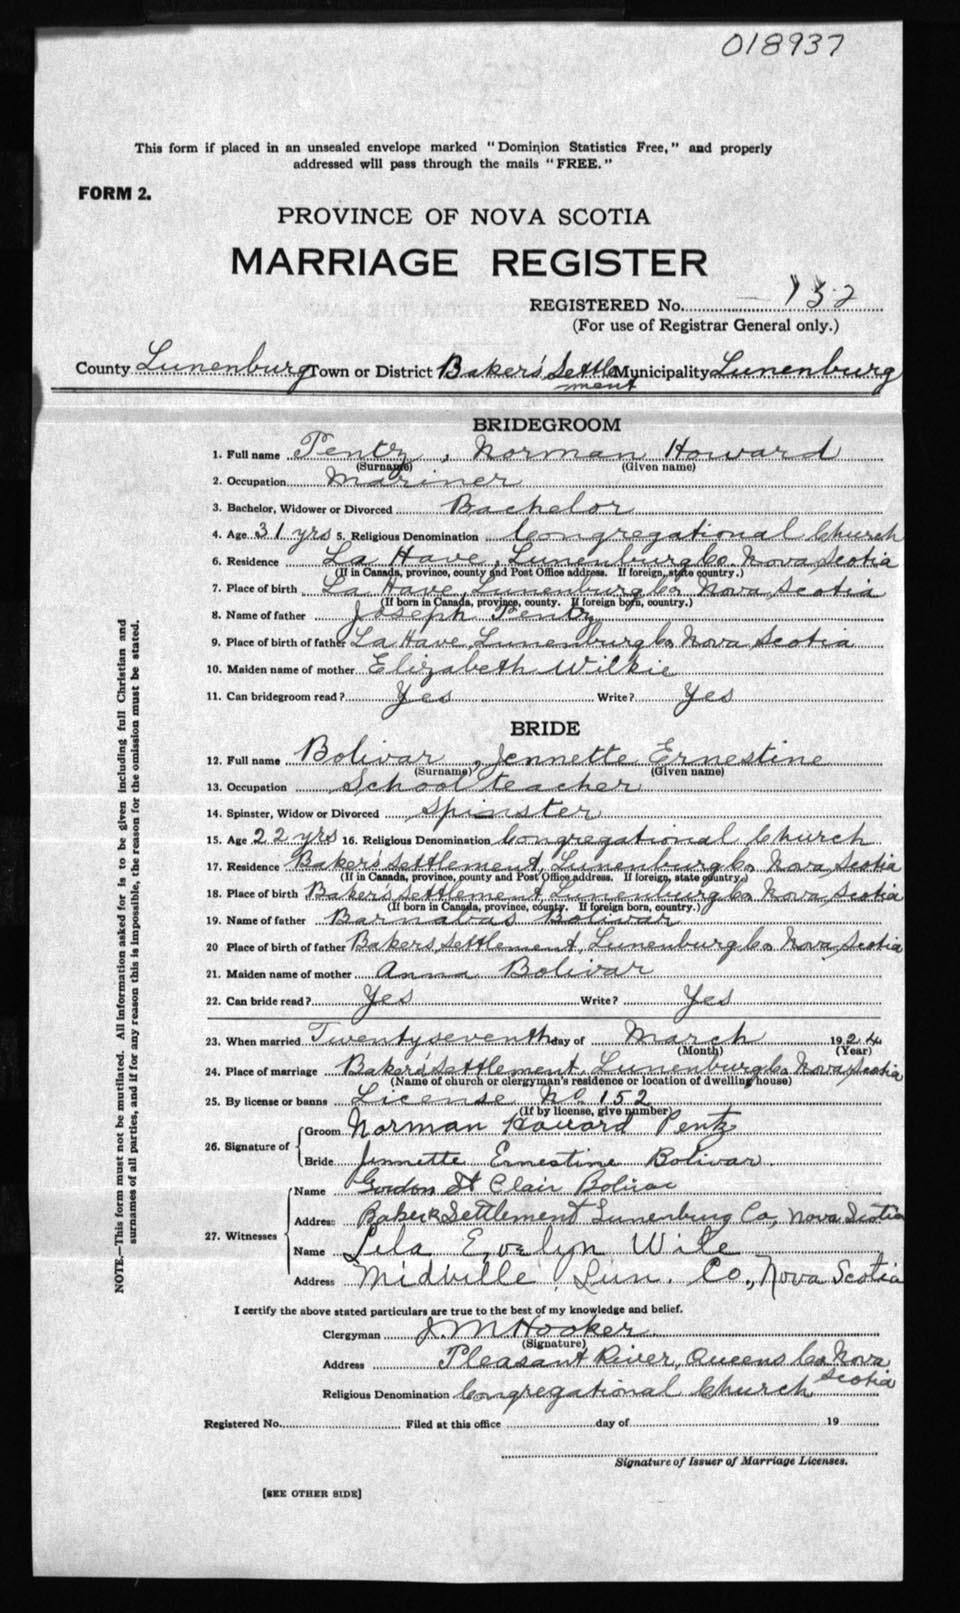 018937
This form if placed in an unsealed envelope marked "Dominion Statistics Free," and properly
addressed will pass through the mails "FREE."
FORM 2.
PROVINCE OF NOVA SCOTIA
MARRIAGE REGISTER
REGISTERED No. 132
(For use of Registrar General only.)
County Lunenburg Town or District Baker's Settlement Municipality Lunenburg
BRIDEGROOM
1. Full name Pentz, Norman Howard
(Surname) (Given name)
2. Occupation Mariner
3. Bachelor, Widower or Divorced Bachelor
4. Age 31 yrs 5. Religious Denomination Congregational Church
6. Residence La Have, Lunenburg Co. Nova Scotia
(If in Canada, province, county and Post Office address. If foreign, state country.)
7. Place of birth La Have, Lunenburg Co. Nova Scotia
(If born in Canada, province, county. If foreign born, country.)
8. Name of father Joseph Pentz
9. Place of birth of father La Have, Lunenburg Co. Nova Scotia
10. Maiden name of mother Elizabeth Wilkie
11. Can bridegroom read? Yes Write? Yes
BRIDE
12. Full name Bolivar, Jennette Ernestine
(Surname) (Given name)
13. Occupation School teacher
14. Spinster, Widow or Divorced Spinster
15. Age 22 yrs 16. Religious Denomination Congregational Church
17. Residence Baker's Settlement, Lunenburg Co. Nova Scotia
(If in Canada, province, county and Post Office address. If foreign, state country.)
18. Place of birth Baker's Settlement Lunenburg Co. Nova Scotia
(If born in Canada, province, county. If foreign born, country.)
19. Name of father Barnabas Bolivar
20 Place of birth of father Bakers Settlement, Lunenburg Co. Nova Scotia
21. Maiden name of mother Anna Bolivar
22. Can bride read? Yes Write? Yes
23. When married Twenty seventh day of March 1924
(Month) (Year)
24. Place of marriage Baker's Settlement, Lunenburg Co. Nova Scotia
(Name of church or clergyman's residence or location of dwelling house)
25. By license or banns License No 152
(If by license, give number)
26. Signature of Groom Norman Howard Pentz
Bride Jennette Ernestine Bolivar.
27. Witnesses Name Gordon St Clair Bolivar
Address Bakers Settlement Lunenburg Co, Nova Scotia
Name Lela Evelyn Wile
Address Midville Lun. Co., Nova Scotia
I certify the above stated particulars are true to the best of my knowledge and belief.
Clergyman J. M Hooker.
(Signature)
Address Pleasant River, Queens Co. Nova Scotia
Religious Denomination Congregational Church
Registered No. Filed at this office day of 19
Signature of Issuer of Marriage Licenses.
[SEE OTHER SIDE]
NOTE.—This form must not be mutilated. All information asked for is to be given including full Christian and
surnames of all parties, and if for any reason this is impossible, the reason for the omission must be stated.